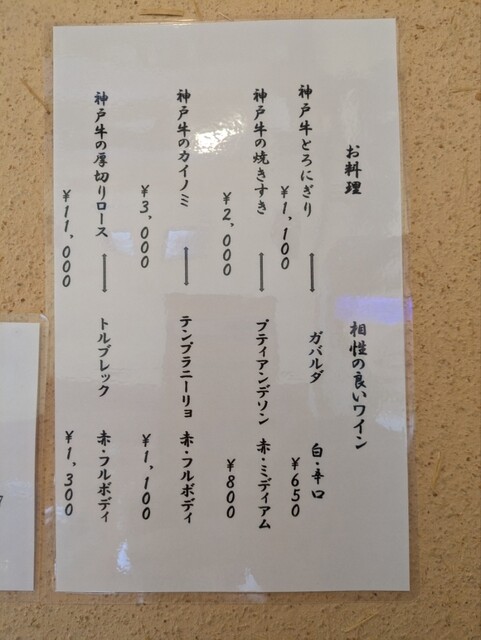 お料理
相性の良いワイン
神戸牛とろにぎり
¥1,100
ガバルダ
白・辛口
¥650
神戸牛の焼きすき
¥2,000
プティアンデソン
赤・ミディアム
¥800
神戸牛のカイノミ
¥3,000
テンプラニーリョ
赤・フルボディ
¥1,100
神戸牛の厚切りロース
¥11,000
トルブレック
赤・フルボディ
¥1,300